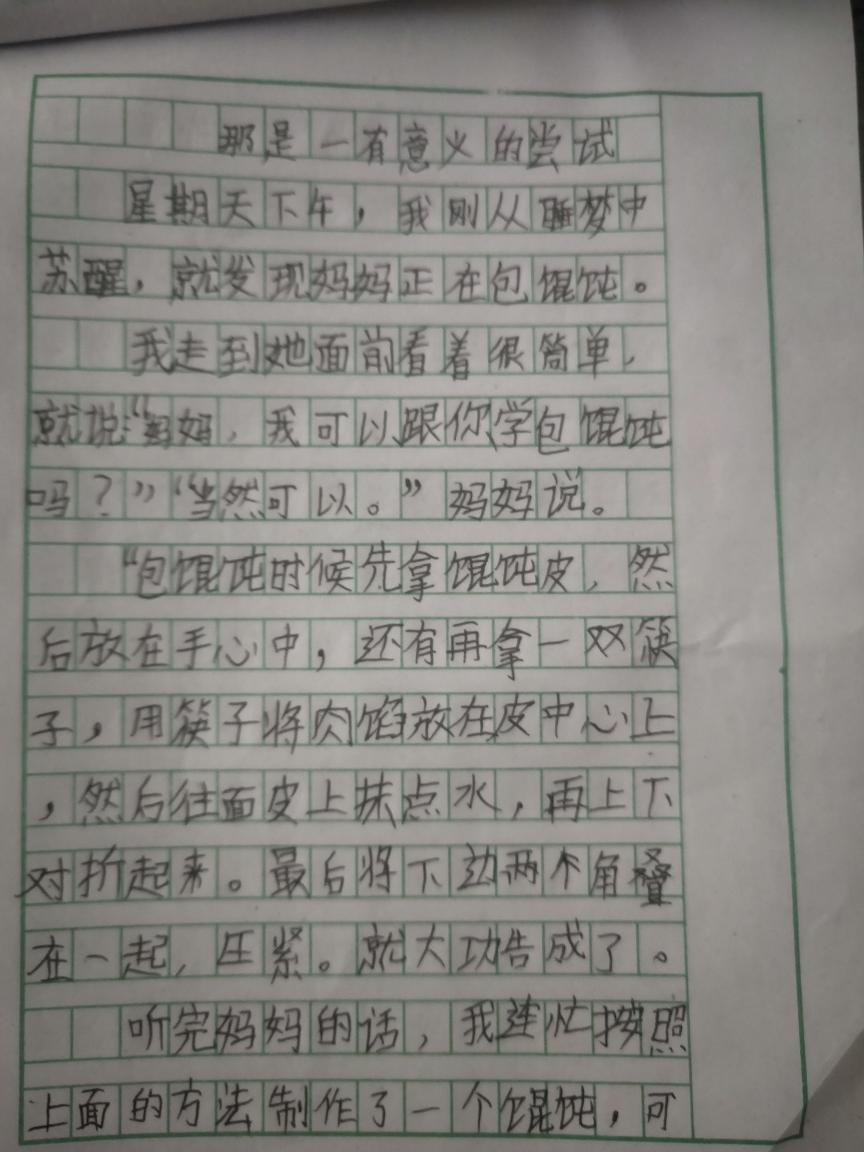 那是一有意义的尝试
星期天下午，我刚从睡梦中
苏醒，就发现妈妈正在包馄饨。
我走到她面前看着很简单，
就说：“妈妈，我可以跟你学包馄饨
吗？”“当然可以。”妈妈说。
“包馄饨时候先拿馄饨皮，然
后放在手心中，还有再拿一双筷
子，用筷子将肉馅放在皮中心上
，然后往面皮上抹点水，再上下
对折起来。最后将下边两个角叠
在一起，压紧。就大功告成了。
听完妈妈的话，我连忙按照
上面的方法制作了一个馄饨，可